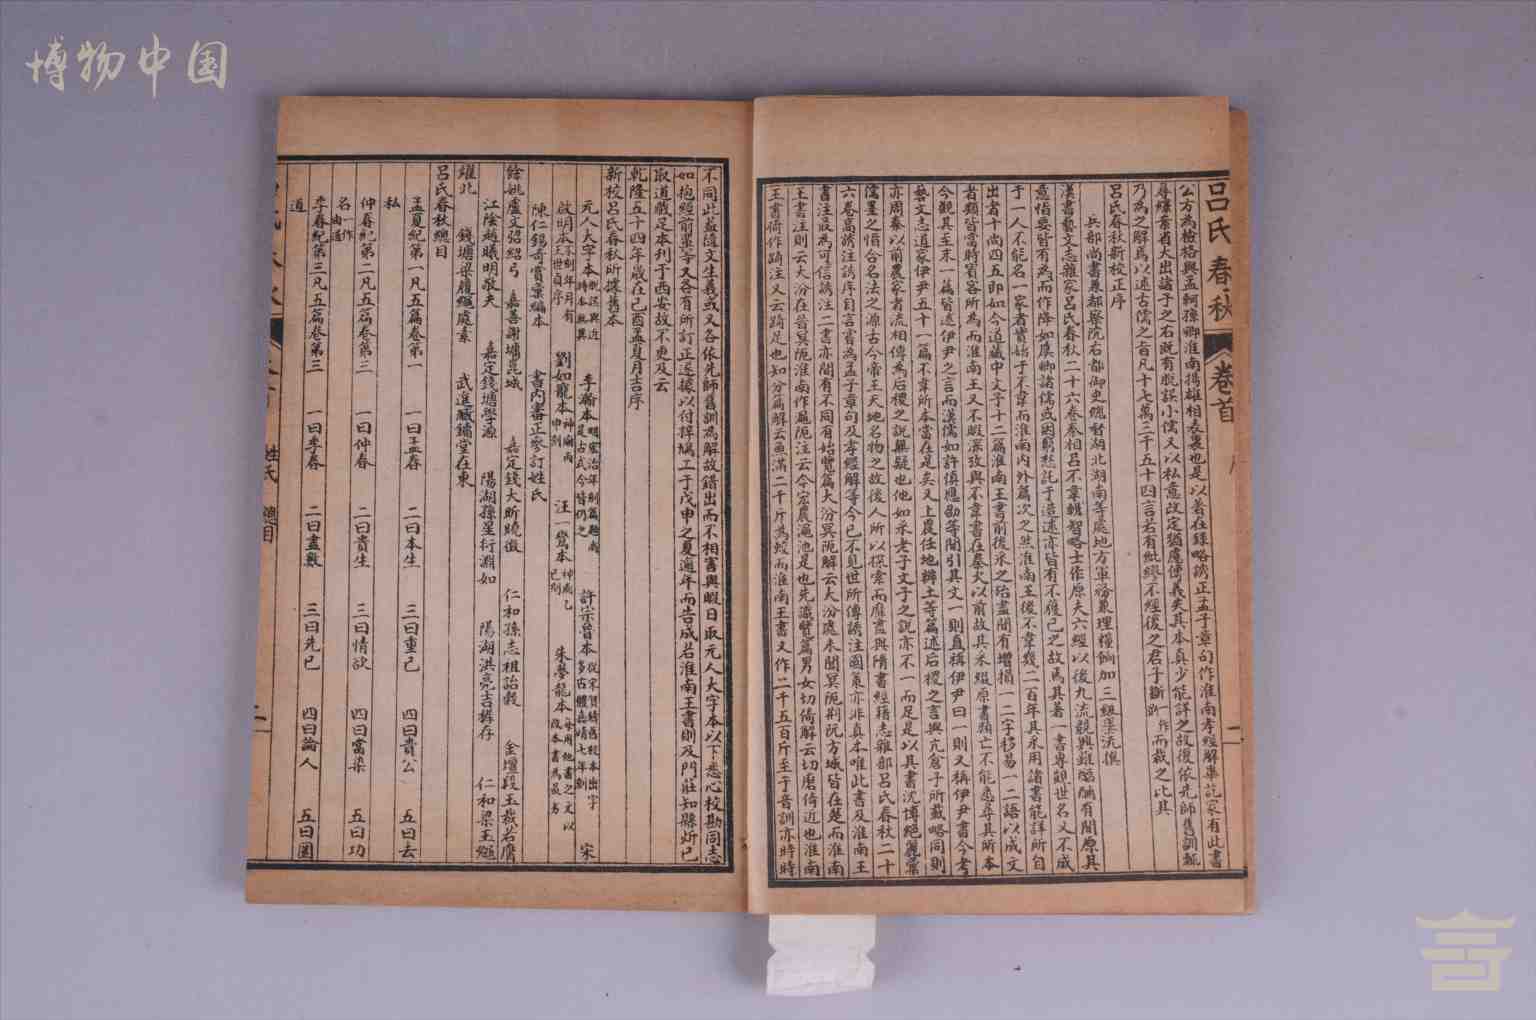 呂氏春秋 卷首 序 一
公方為檢格與孟軻孫卿淮南揚雄相表裏也是以著在錄略誘正孟子章句作淮南孝經解畢訖家有此書
尋繹案省大出諸子之右既有脫誤小儒又以私意改定猶慮傳義失其本真少能詳之故復依先師舊訓輒
乃為之解焉以述古儒之旨凡十七萬三千五十四言若有紕繆不經後之君子斷一作而裁之比其
呂氏春秋新校正序
兵部尚書兼都察院右都御史總督湖北湖南等處地方軍務兼理糧餉加三級畢沅撰
漢書藝文志雜家呂氏春秋二十六卷秦相呂不韋輯智略士作原夫六經以後九流競興雖醇醨有間原其
意恉要皆有為而作降如虞卿諸儒或因窮愁託于造述亦皆有不獲已之故焉其著一書專覬世名又不成
于一人不能名一家者實始于不韋而淮南內外篇次之然淮南王後不韋幾二百年其采用諸書能詳所自
出者十尚四五即如今道藏中文子十二篇淮南王書前後采之殆盡間有增損一二字移易一二語以成文
者類皆當時賓客所為而淮南王又不暇深攷與不韋書在秦火以前故其采綴原書類亡不能悉尋其所本
今觀其至味一篇皆述伊尹之言而漢儒如許慎應劭等間引其文一則直稱伊尹曰一則又稱伊尹書今考
藝文志道家伊尹五十一篇不韋所本當在是矣又上農任地辨土等篇述后稷之言與亢倉子所載略同則
亦周秦以前農家者流相傳為后稷之說無疑也他如采老子文子之說亦不一而足是以其書沈博絕麗彙
儒墨之恉合名法之源古今帝王天地名物之故後人所以探索而靡盡與隋書經籍志雜部呂氏春秋二十
六卷高誘注誘序自言嘗為孟子章句及孝經解等今已不見世所傳誘注國策亦非真本唯此書及淮南王
書注最為可信誘注二書亦間有不同有始覽篇大汾冥阨解云大汾處未聞冥阨荊阮方城皆在楚而淮南
王書注則云大汾在晉冥阨淮南作澠阨注云今宏農澠池是也先識覽篇男女切倚解云切磨倚近也淮南
王書倚作踦注又云踦足也知分篇解云魚滿二千斤為蛟而淮南王書又作二千五百斤至于音訓亦時時
不同此蓋隨文生義或又各依先師舊訓為解故錯出而不相害與暇日取元人大字本以下悉心校勘同志
如抱經前輩等又各有所訂正遂據以付梓鳩工于戊申之夏逾年而告成若淮南王書則及門莊知縣炘已
取道藏足本刊于西安故不更及云
乾隆五十四年歲在己酉孟夏月吉序
新校呂氏春秋所據舊本
元人大字本脫誤與近時本無異 李瀚本明宏治年刻篇題尚是古式今皆仍之 許宗魯本從宋賀鑄舊校本出字多古體嘉靖七年刻 宋
啟明本不刻年月有王世貞序 劉如寵本神廟丙申刻 汪一鸞本神廟乙巳刻 朱夢龍本每用他書之文以改本書為最劣
陳仁錫奇賞彙編本
書內審正參訂姓氏
餘姚盧文弨紹弓 嘉善謝墉崑城 嘉定錢大昕曉徵 仁和孫志祖詒穀 金壇段玉裁若膺
江陰趙曦明敬夫 嘉定錢塘學源 陽湖孫星衍淵如 陽湖洪亮吉穉存 仁和梁玉繩
燿北 錢塘梁履繩處素 武進臧鏞堂在東
呂氏春秋總目
孟夏紀第一凡五篇卷第一 一曰孟春 二曰本生 三曰重己 四曰貴公 五曰去
私
仲春紀第二凡五篇卷第二 一曰仲春 二曰貴生 三曰情欲 四曰當染 五曰功
名一作由道
季春紀第三凡五篇卷第三 一曰季春 二曰盡數 三曰先己 四曰論人 五曰圜
道
姓氏 總目 二
博物中国